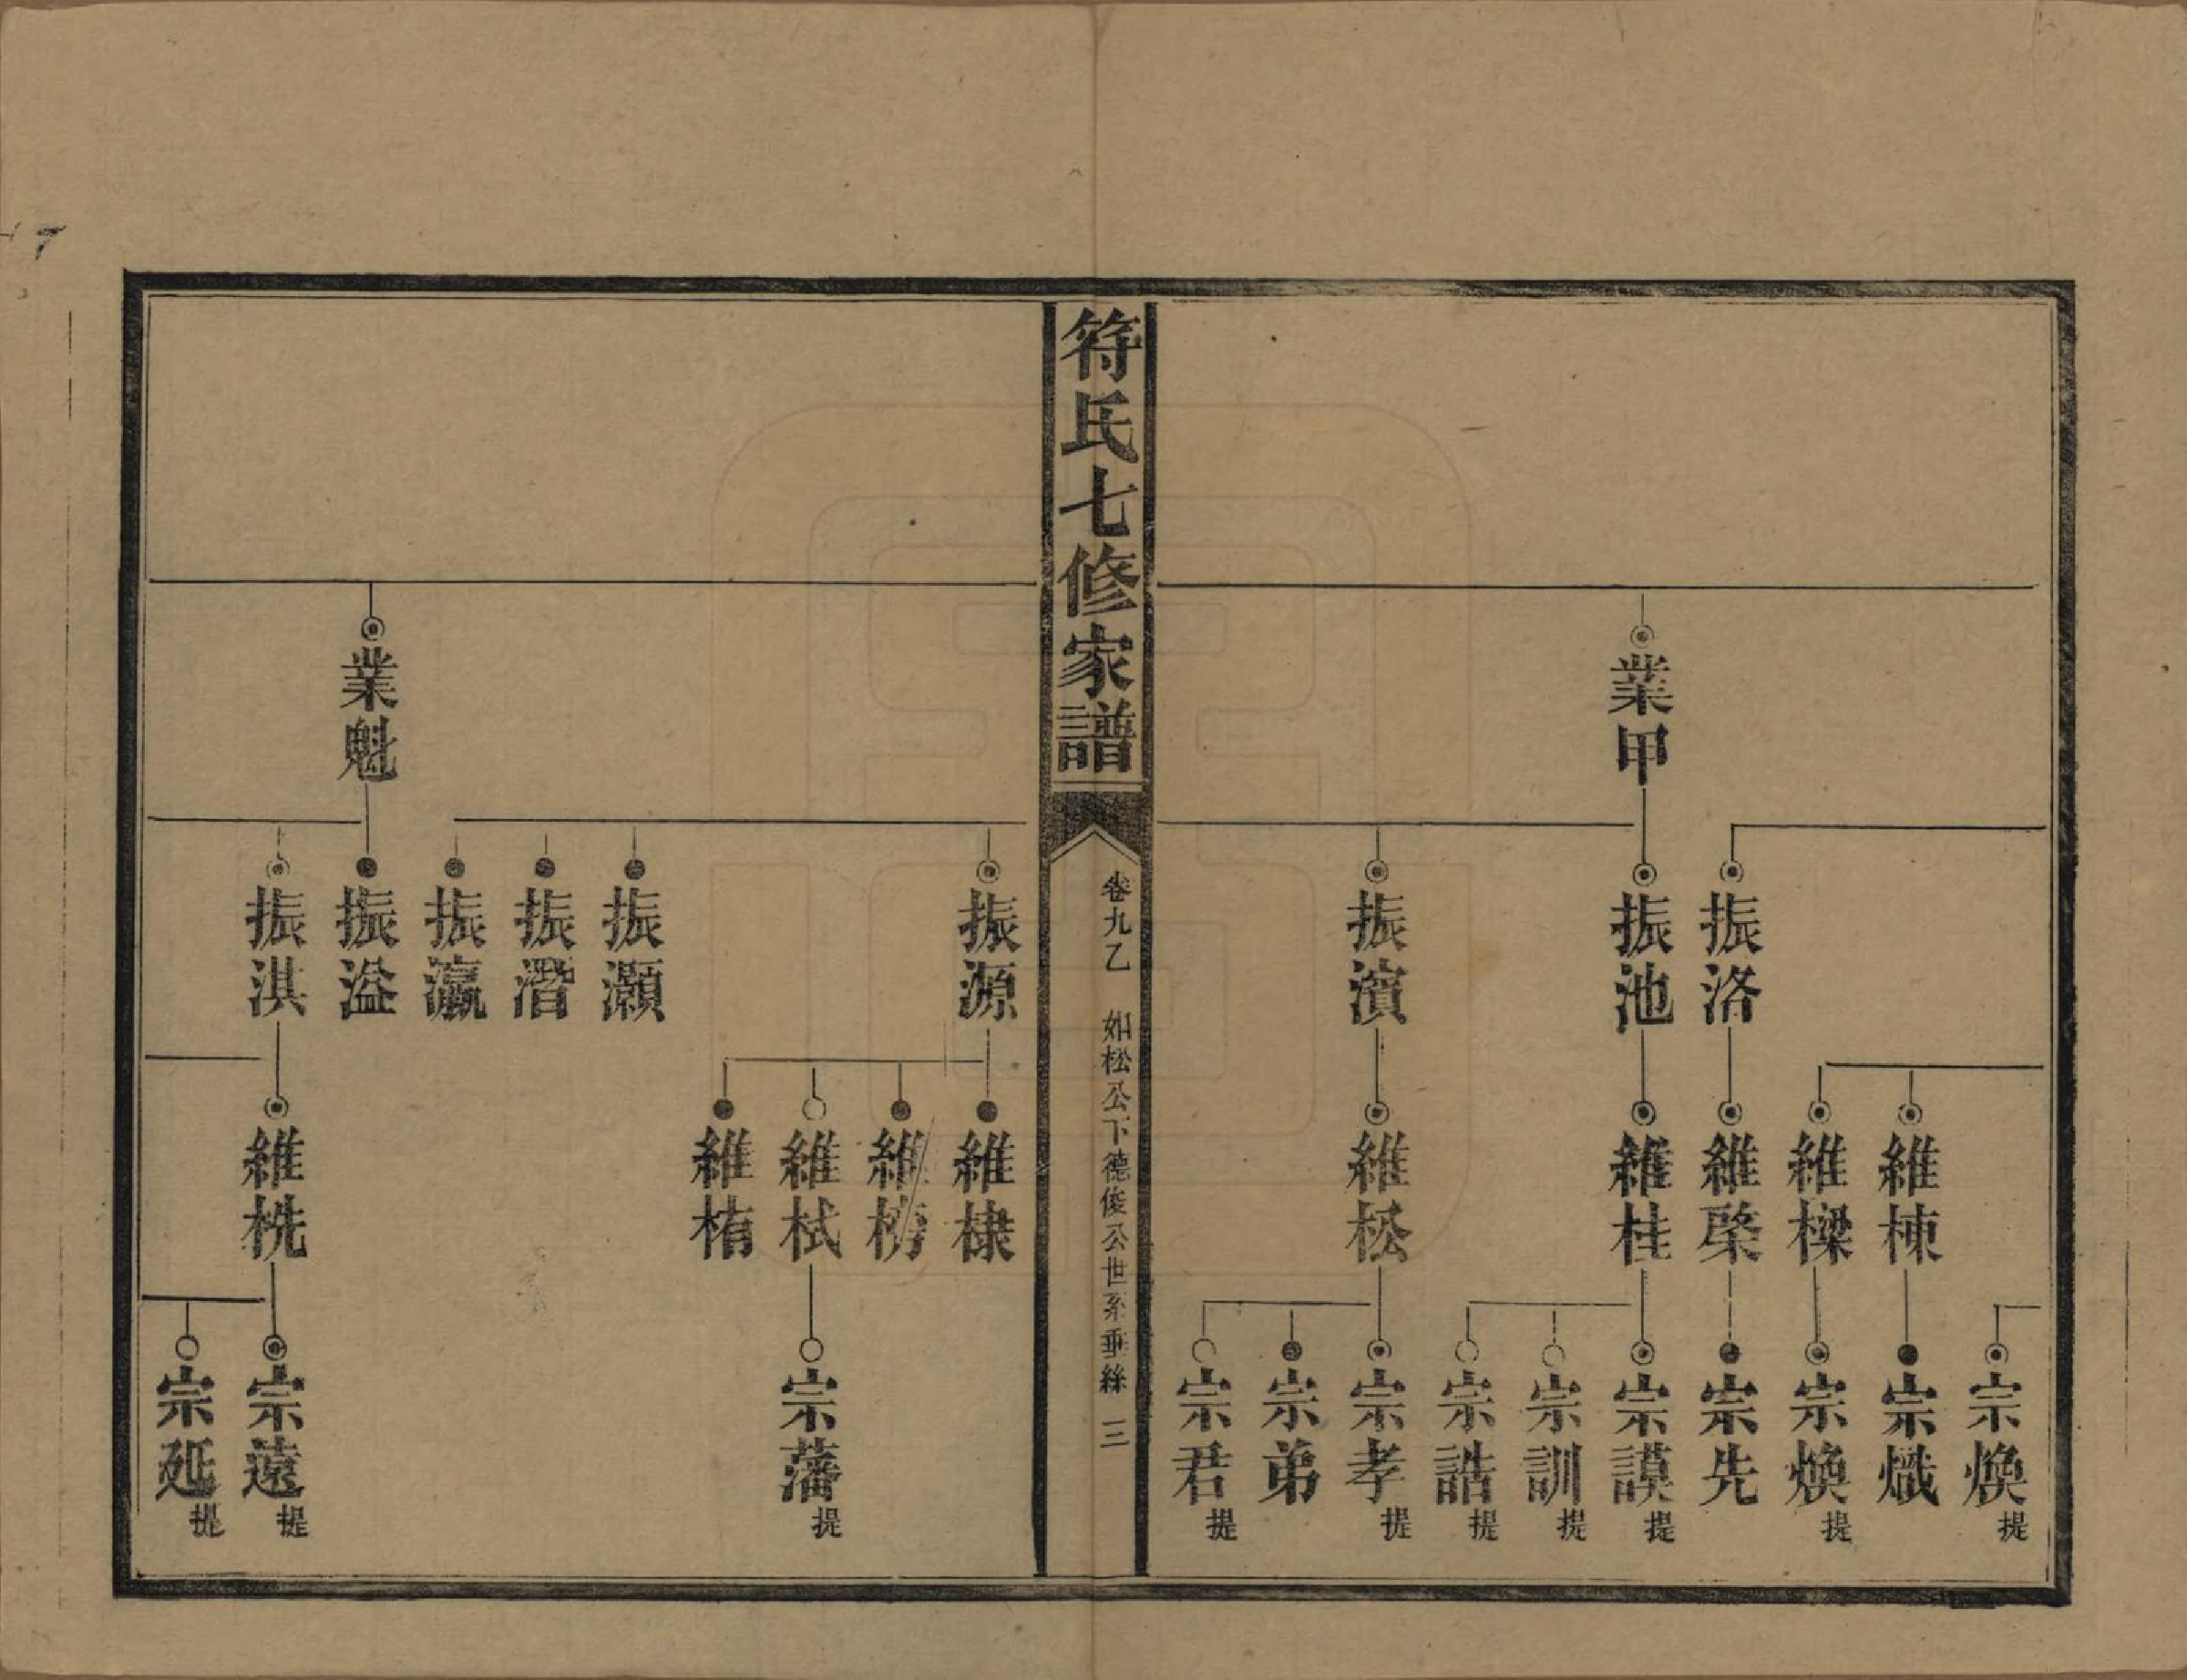 業甲
振洛
振池
振濱
維棟
維樑
維棨
維桂
維松
宗煥提
宗熾
宗煥提
宗先
宗謨提
宗訓提
宗誥提
宗孝提
宗弟
宗君提
符氏七修家譜
卷九乙 如松公下德俊公世系垂絲 三
業魁
振源
振灝
振潛
振瀛
振溢
振淇
維棣
維榜
維栻
維栯
維桄
宗藩提
宗遠提
宗延提